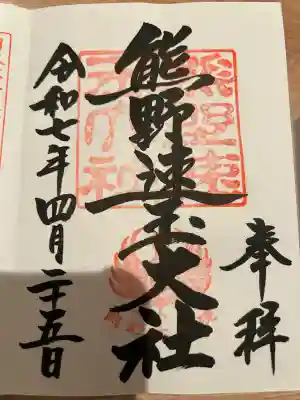 奉拝
熊野速玉大社
令和七年四月二十五日